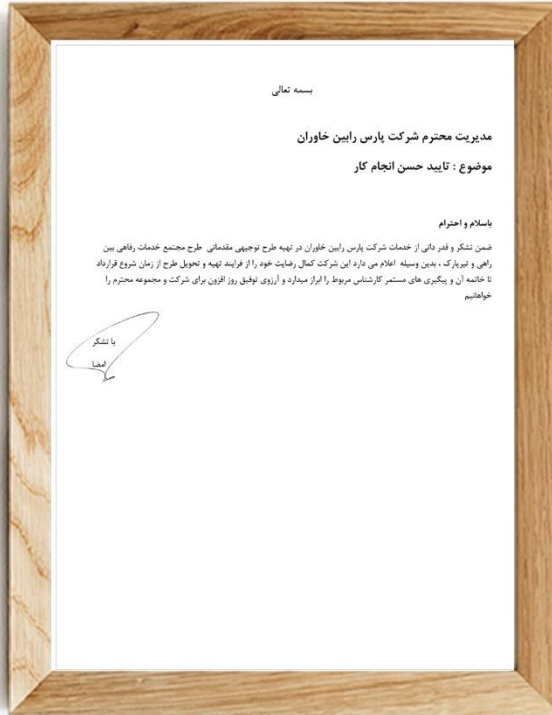 بسمه تعالی
مدیریت محترم شرکت پارس رابین خاوران
موضوع : تایید حسن انجام کار
باسلام و احترام
ضمن تشکر و قدر دانی از خدمات شرکت پارس رابین خاوران در تهیه طرح توجیهی مقدماتی طرح مجتمع خدمات رفاهی بین
راهی و تیرپارک ، بدین وسیله اعلام می دارد این شرکت کمال رضایت خود را از فرایند تهیه و تحویل طرح از زمان شروع قرارداد
تا خاتمه آن و پیگیری های مستمر کارشناس مربوط را ابراز میدارد و آرزوی توفیق روز افزون برای شرکت و مجموعه محترم را
خواهانیم
با تشکر
امضا